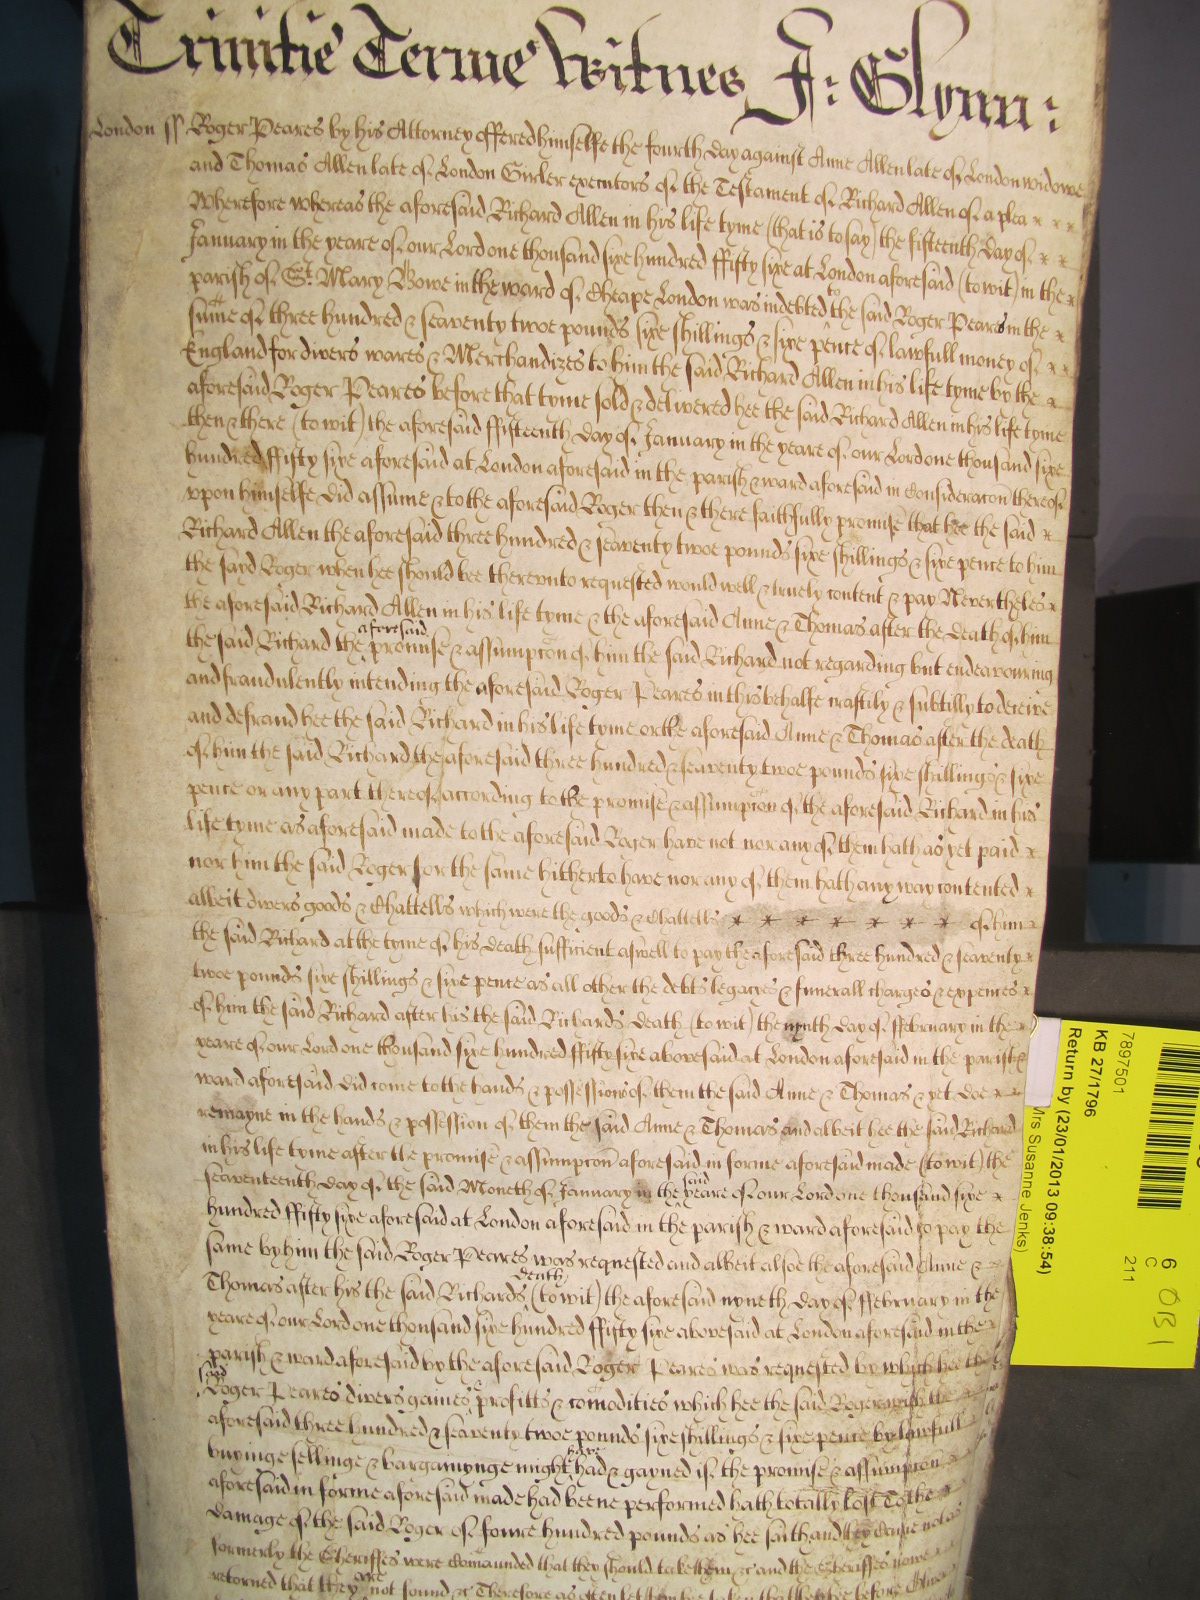 Trinitie Terme Witnes J: Glynn:
London ss Roger Peares by his Attorney offered himselfe the fourth day against Anne Allen late of London widowe
and Thomas Allen late of London Girler executors of the Testament of Richard Allen of a plea
Wherefore whereas the aforesaid Richard Allen in his life tyme (that is to say) the fifteenth day of
January in the yeare of our Lord one thousand sixe hundred ffifty sixe at London aforesaid (to wit) in the
parish of St. Mary Bowe in the ward of Cheape London was indebted to the said Roger Peares in the
sume of three hundred & seaventy twoe pounds sixe shillings & sixe pence of lawfull money of
England for divers wares & Merchandizes to him the said Richard Allen in his life tyme by the
aforesaid Roger Peares before that tyme sold & delivered hee the said Richard Allen in his life tyme
then & there (to wit) the aforesaid ffifteenth day of January in the yeare of our Lord one thousand sixe
hundred ffifty sixe aforesaid at London aforesaid in the parish & ward aforesaid in consideracon thereof
vpon himselfe did assume & to the aforesaid Roger then & there faithfully promise that hee the said
Richard Allen the aforesaid three hundred & seaventy twoe pounds sixe shillings & sixe pence to him
the sayd Roger when hee should bee therevnto requested would well & truely content & pay Nevertheles
the aforesaid Richard Allen in his life tyme & the aforesaid Anne & Thomas after the death of him
the said Richard the aforesaid promise & assumpcon of him the said Richard not regarding but endeavouring
and fraudulently intending the aforesaid Roger Peares in this behalfe craftily & subtilly to deceive
and defraud hee the said Richard in his life tyme or the aforesaid Anne & Thomas after the death
of him the said Richard the aforesaid three hundred & seaventy twoe pounds sixe shillings & sixe
pence or any part thereof according to the promise & assumpcon of the aforesaid Richard in his
life tyme as aforesaid made to the aforesaid Roger have not nor any of them hath as yet paid
nor him the said Roger for the same hitherto have nor any of them hath any way contented
albeit divers goods & Chattells which were the goods & Chattells of him
the said Richard at the tyme of his death sufficient aswell to pay the aforesaid three hundred & seaventy
twoe pounds sixe shillings & sixe pence as all other the debts legacyes & funerall charges & expences
of him the said Richard after his the said Richards death (to wit) the nynth day of ffebruary in the
yeare of our Lord one thousand sixe hundred ffifty sixe abovesaid at London aforesaid in the parish &
ward aforesaid did come to the hands & possession of them the said Anne & Thomas & yet doe
remayne in the hands & possession of them the said Anne & Thomas and albeit hee the said Richard
in his life tyme after the promise & assumpcon aforesaid in forme aforesaid made (to wit) the
seaventeenth day of the said Moneth of January in the said yeare of our Lord one thousand sixe
hundred ffifty sixe aforesaid at London aforesaid in the parish & ward aforesaid to pay the
same by him the said Roger Peares was requested and albeit alsoe the aforesaid Anne &
Thomas after his the said Richards death (to wit) the aforesaid nyneth day of ffebruary in the
yeare of our Lord one thousand sixe hundred ffifty sixe abovesaid at London aforesaid in the
parish & ward aforesaid by the aforesaid Roger Peares was requested by which hee the
said Roger Peares divers gaines profitts & comodities which hee the said Roger with the
aforesaid three hundred & seaventy twoe pounds sixe shillings & sixe pence by lawfull
buyinge sellinge & bargaynynge might have had & gayned if the promise & assumpcon
aforesaid in forme aforesaid made had beene performed hath totally lost To the
damage of the said Roger of foure hundred pounds as hee saith and they came not as
formerly the Sheriffes were comaunded that they should take them &c and the Sheriffes nowe
retorned that they are not found &c Therefore as often let them be taken that
7897501
KB 27/1796
Return by (23/01/2013 09:38:54)
Mrs Susanne Jenks)
6
C
211